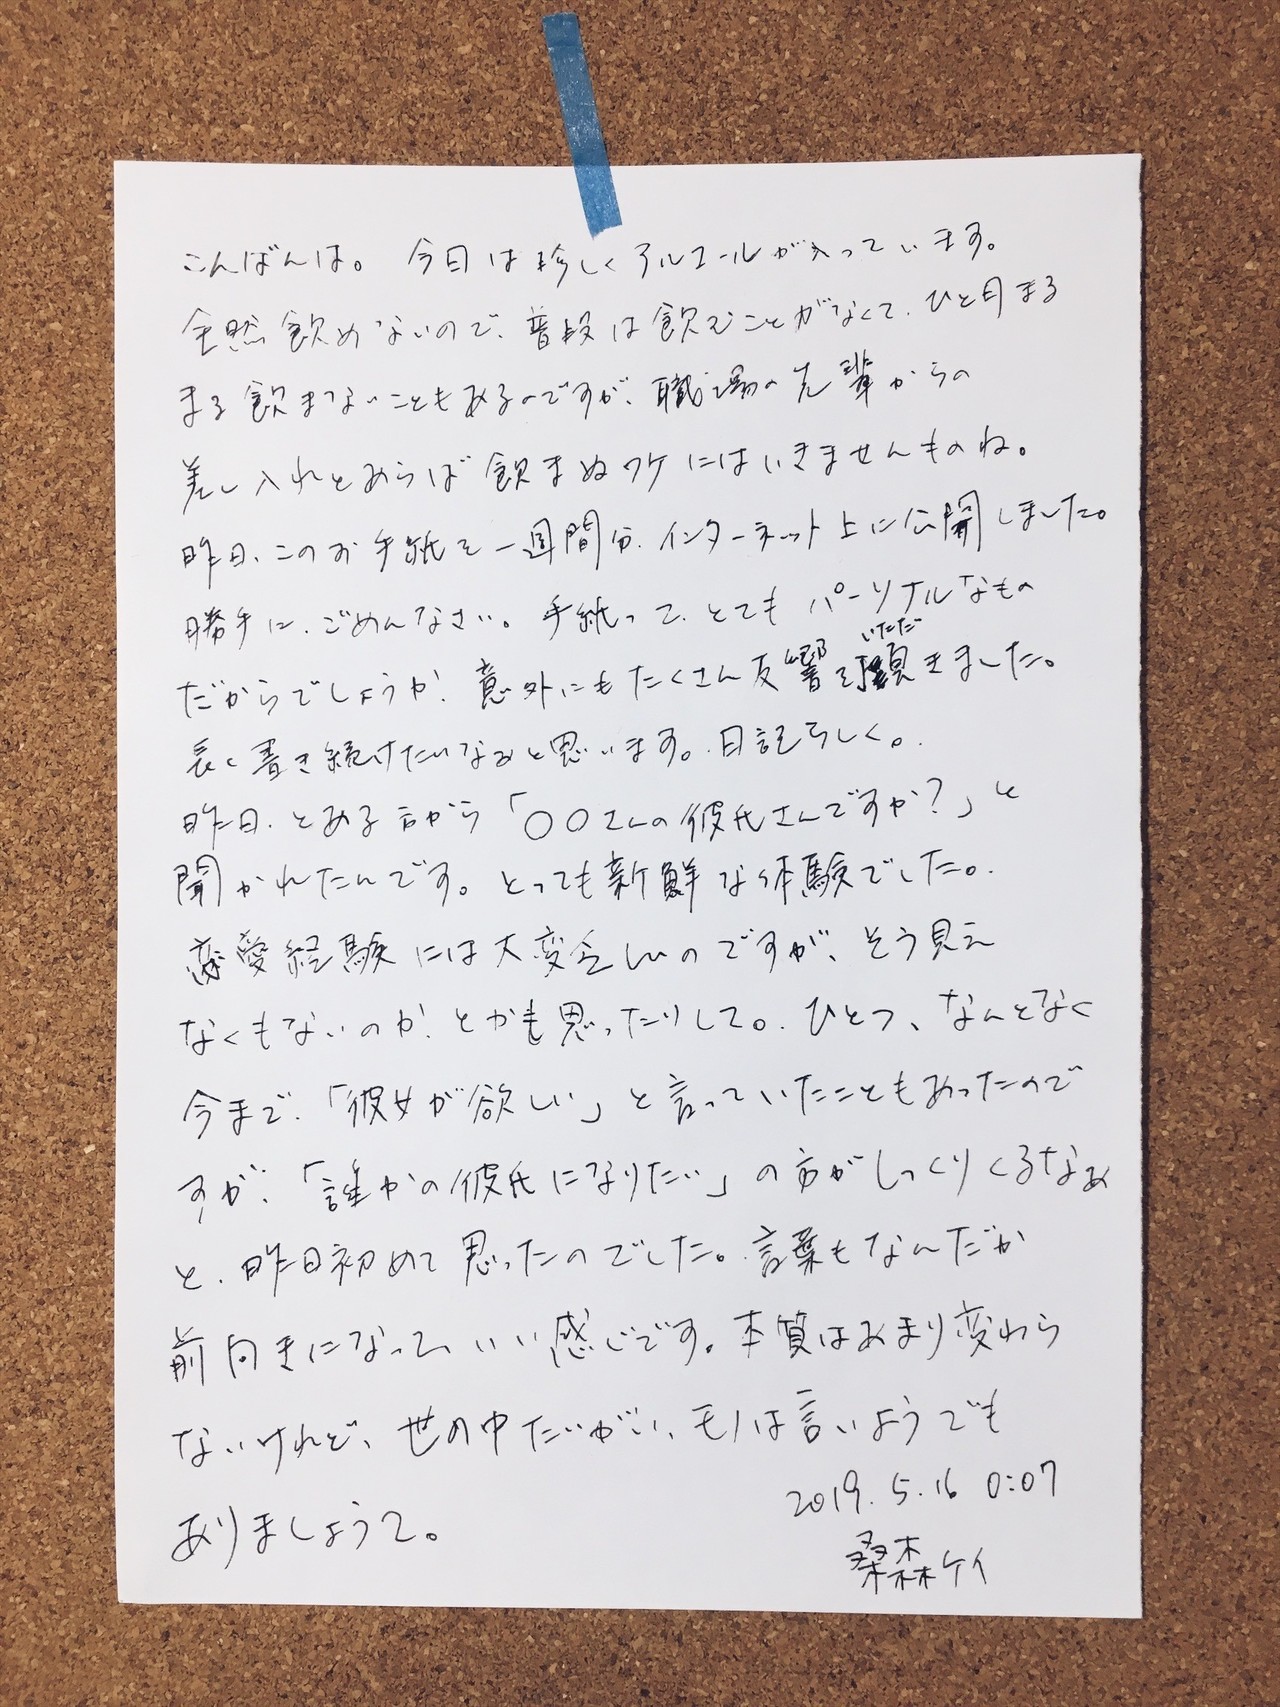 こんばんは。今日は珍しくアルコールが入っています。
全然飲めないので、普段は飲むことがなくて、ひと月まる
まる飲まないこともあるのですが、職場の先輩からの
差し入れとあらば飲まぬワケにはいきませんものね。
昨日、このお手紙を一週間分、インターネット上に公開しました。
勝手に、ごめんなさい。手紙って、とてもパーソナルなもの
だからでしょうか、意外にもたくさん反響を頂きました。
いただ
長く書き続けたいなあと思います。日記らしく。
昨日、とある方から「〇〇さんの彼氏さんですか?」と
聞かれたんです。とっても新鮮な体験でした。
恋愛経験には大変乏しいのですが、そう見え
なくもないのか、とかも思ったりして。ひとつ、なんとなく
今まで、「彼女が欲しい」と言っていたこともあったので
すが、「誰かの彼氏になりたい」の方がしっくりくるなあ
と、昨日初めて思ったのでした。言葉もなんだか
前向きになって、いい感じです。本質はあまり変わら
ないけれど、世の中だいがい、モノは言いようでも
ありましょうて。
2019.5.16 0:07
桑森ケイ